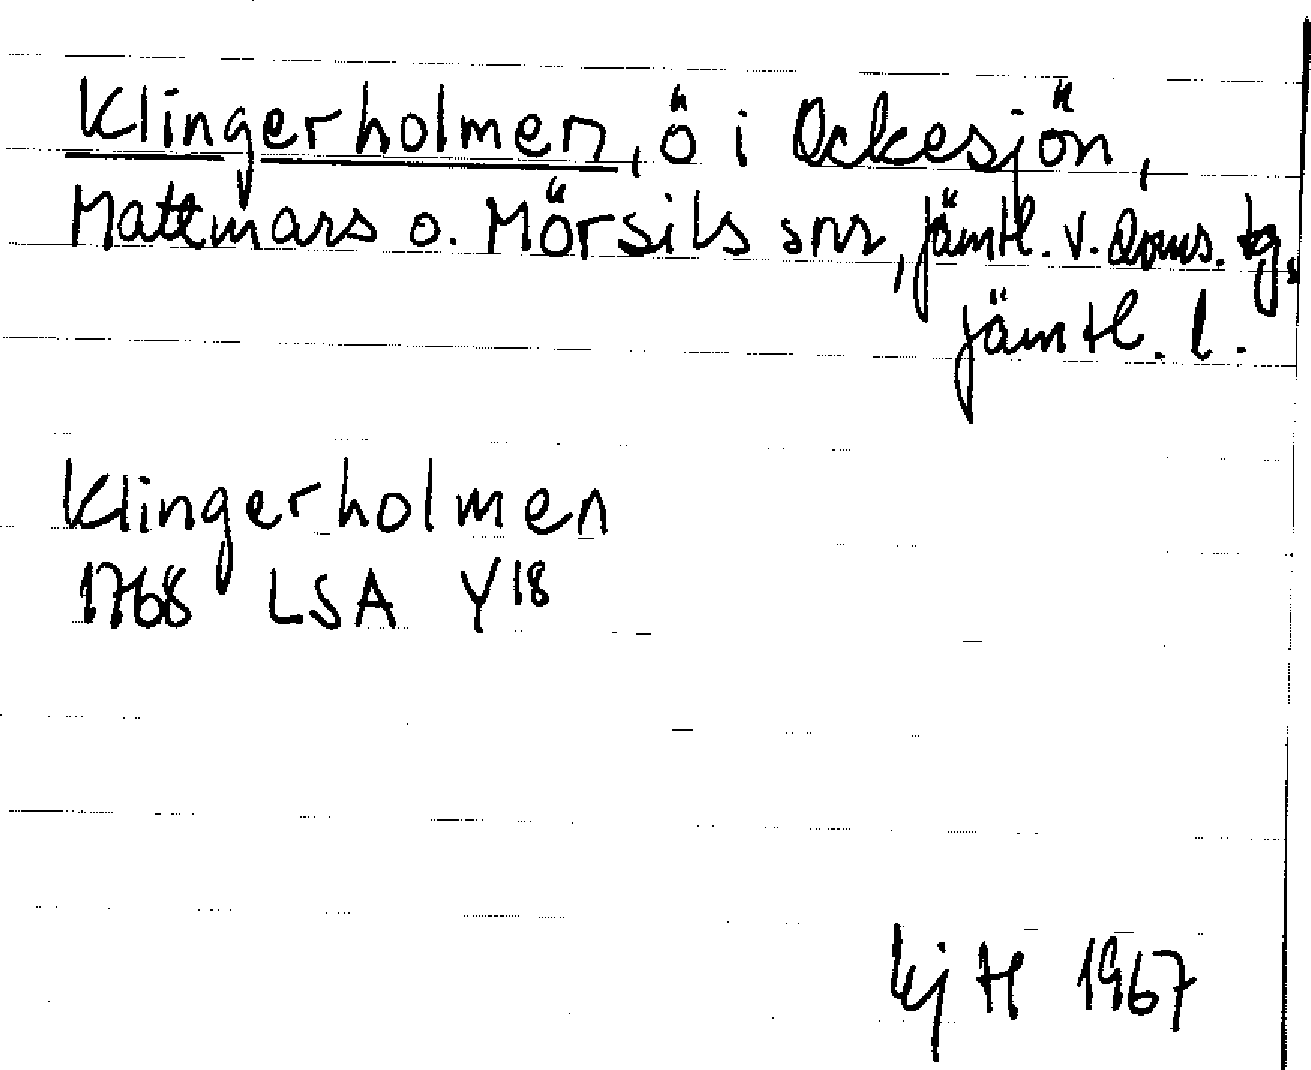 Klingerholmen, ö i Ockesjön,
Mattmars o. Mörsils snr, Jämtl. v. doms. tg,
Jämtl. l.
Klingerholmen
1768 LSA Y18
kj H 1967